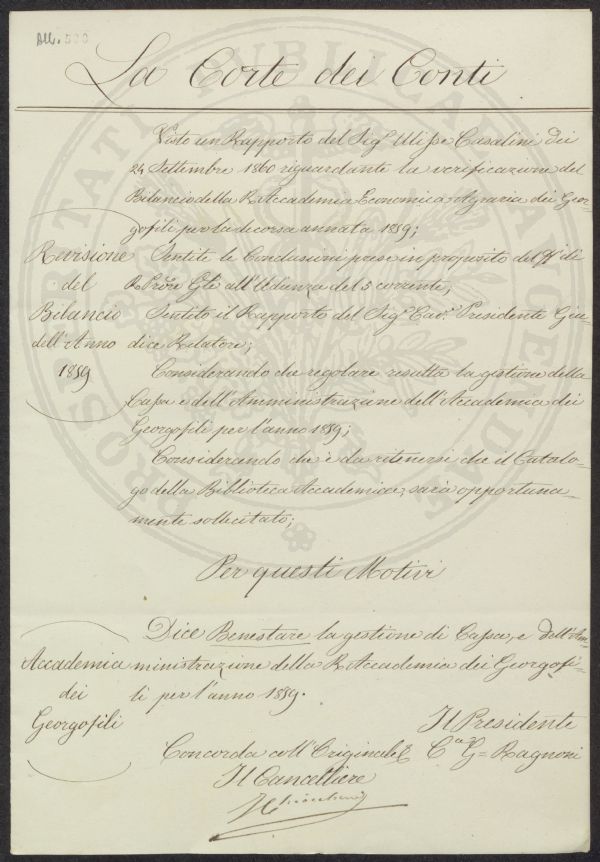 All. 500
La Corte dei Conti
Visto un Rapporto del Sig.r Ulisse Casalini dei
24 Settembre 1860 riguardante la verificazione del
Bilancio della R. Accademia Economica Agraria dei Geor-
gofili per la decorsa annata 1859;
Sentite le Conclusioni prese in proposito del di
R. Gle all'Udanza del 5 corrente;
Sentito il Rapporto del Sig.r Cav.e Presidente Giu-
dice Relatore;
Revisione
del
Bilancio
dell'Anno
1859
Considerando che regolare resulta la gestione della
Cassa e dell'Amministrazione dell'Accademia dei
Georgofili per l'anno 1859;
Considerando che è da ritenersi che il Catalo-
go della Biblioteca Accademica, sarà opportuna-
mente sollecitato;
Per questi Motivi
Dice Benestare la gestione di Cassa, e dell'Am-
ministrazione della R. Accademia dei Georgofi-
li per l'anno 1859.
Accademia
dei
Georgofili
Il Presidente
G= Ragnoni
Concorda coll'Originale
Il Cancelliere
PROSPERITATI PUBLICAE AUGENDAE